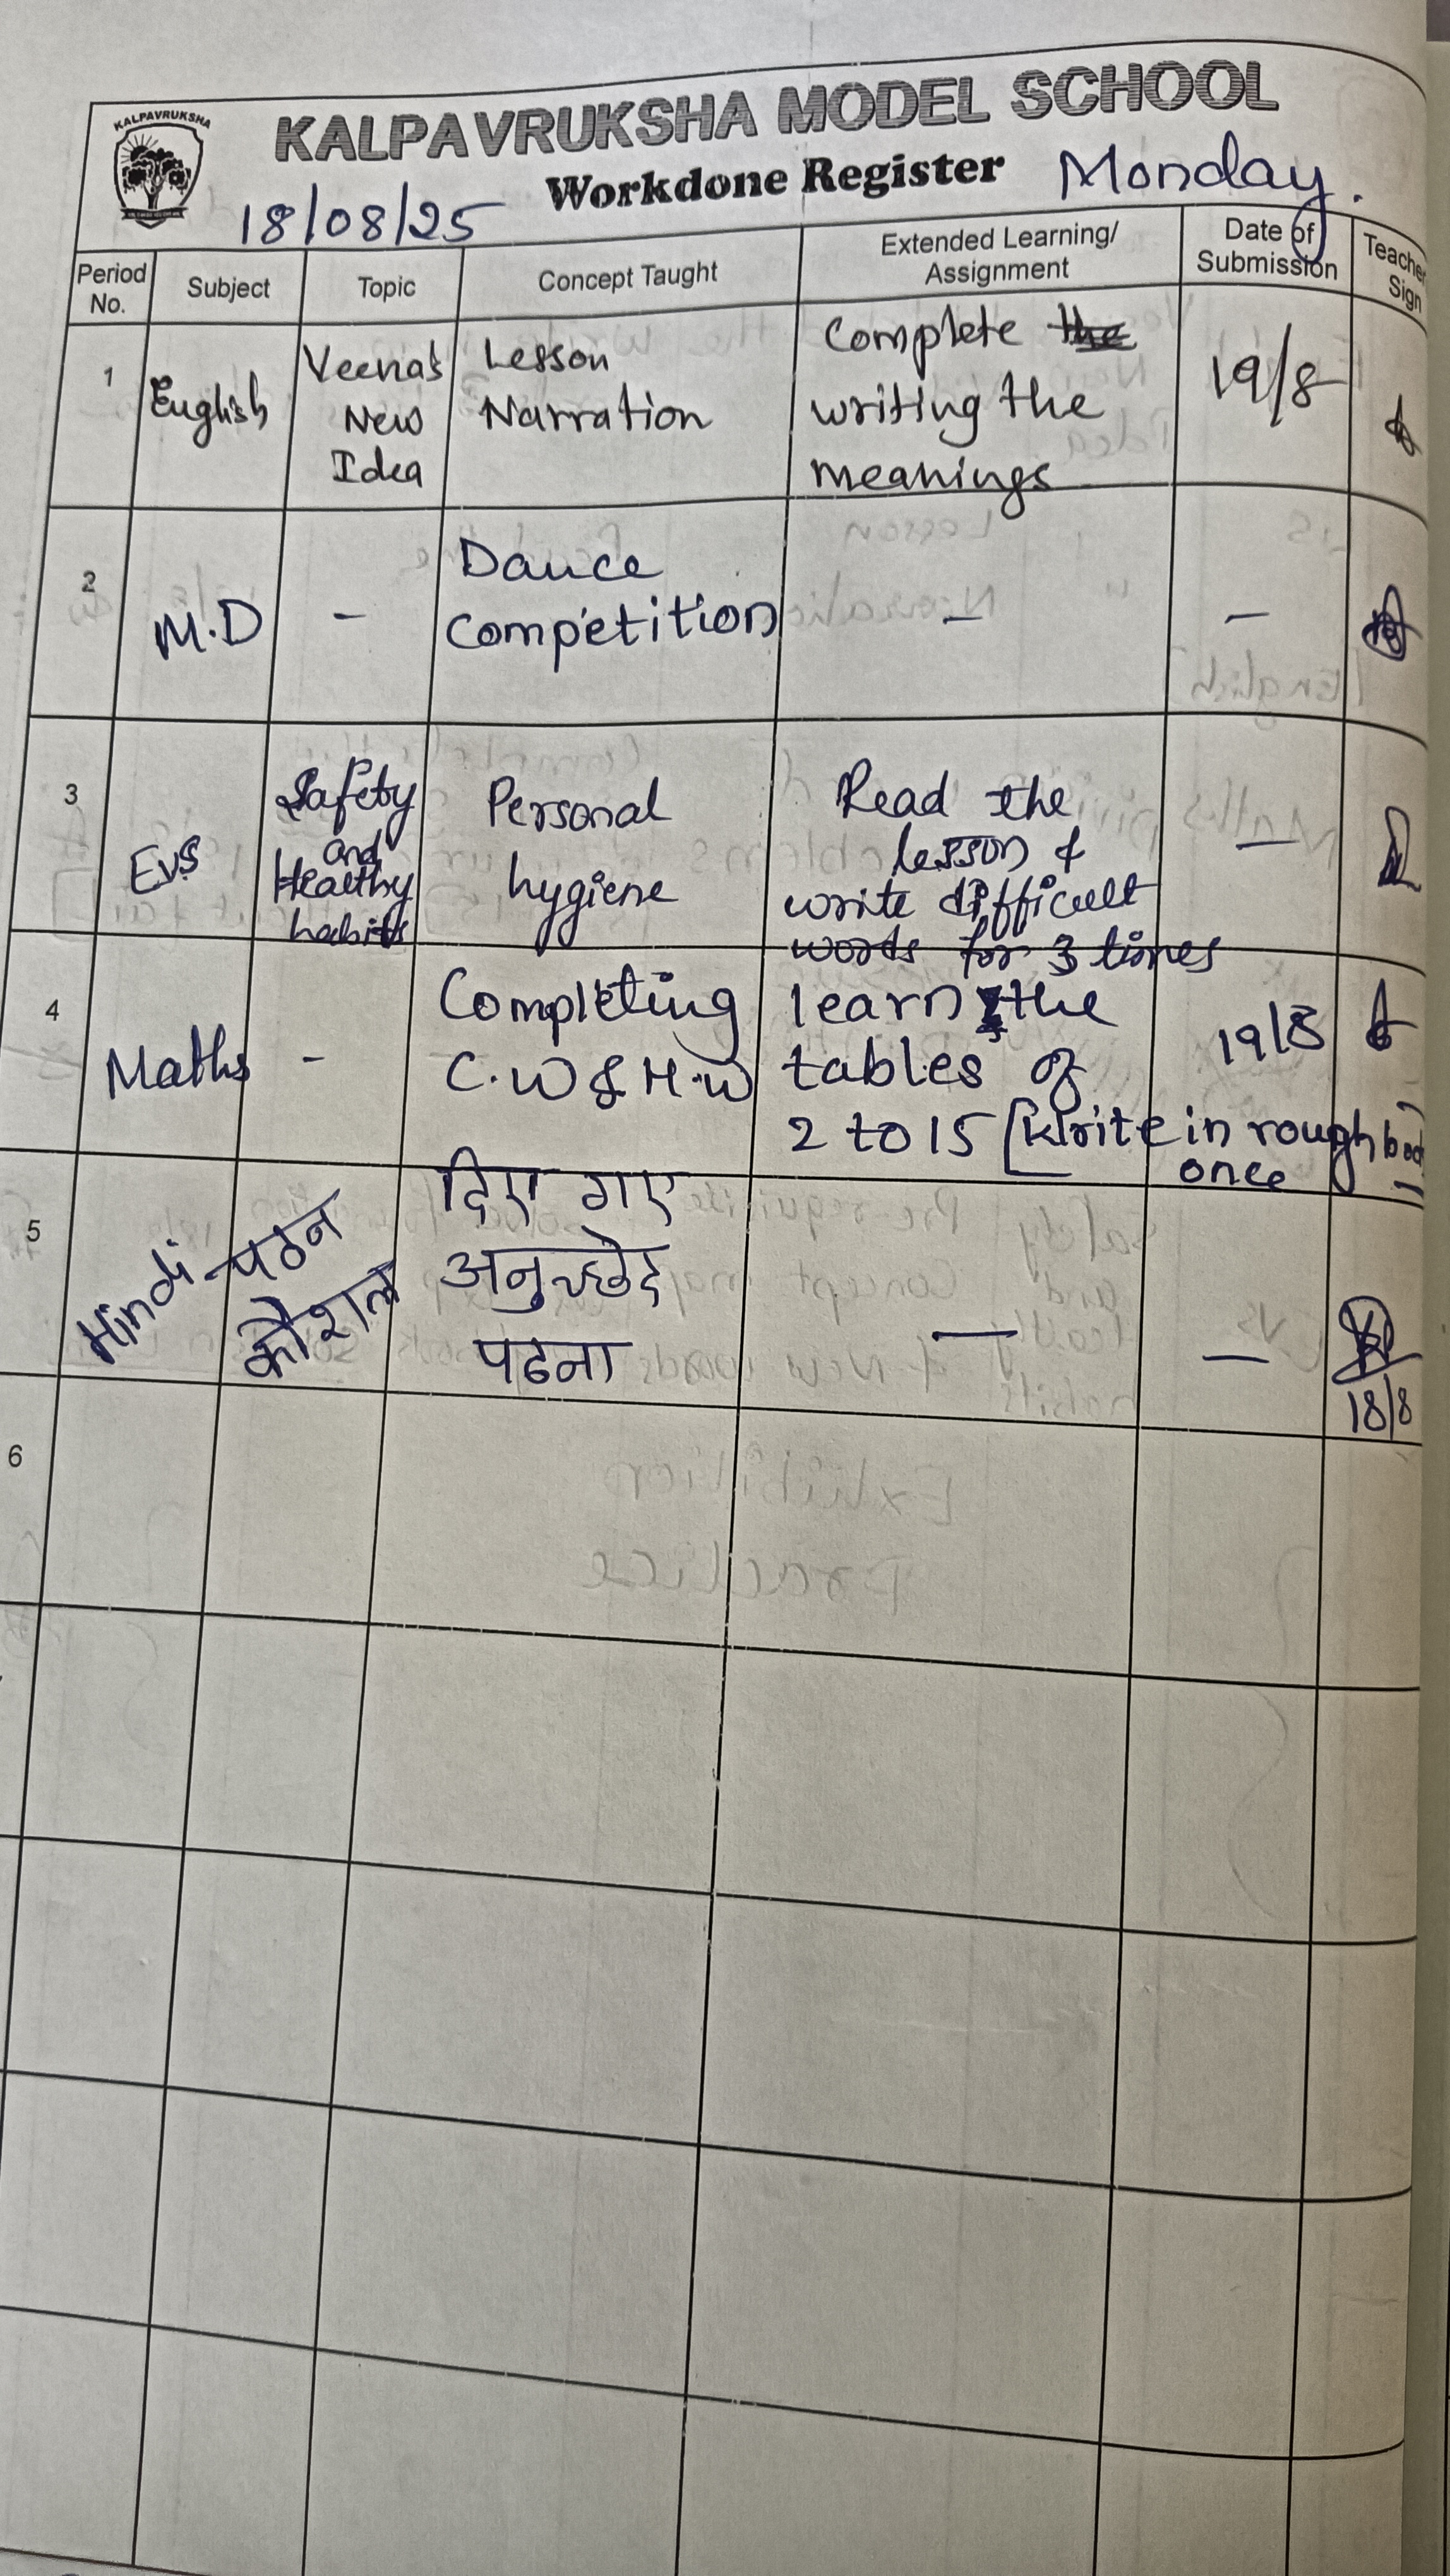 KALPAVRUKSHA
KALPAVRUKSHA MODEL SCHOOL
Workdone Register Monday.
18/08/25
Period No.
Subject
Topic
Concept Taught
Extended Learning/
Assignment
Date of
Submission
Teacher
Sign
1
English
Veena's
New
Idea
Lesson
Narration
Complete
writing the
meanings
19/8
2
M.D
-
Dance
Competition
-
-
3
Evs
Safety
and
Healthy
habits
Personal
hygiene
Read the
lesson &
write difficult
words for 3 times
-
4
Maths
-
Completing
C.W & H.W
learn the
tables of
2 to 15 [Write in rough
once
19/8
5
Hindi
-पठन
कौशल
दिए गए
अनुच्छेद
पढना
-
-
18/8
6